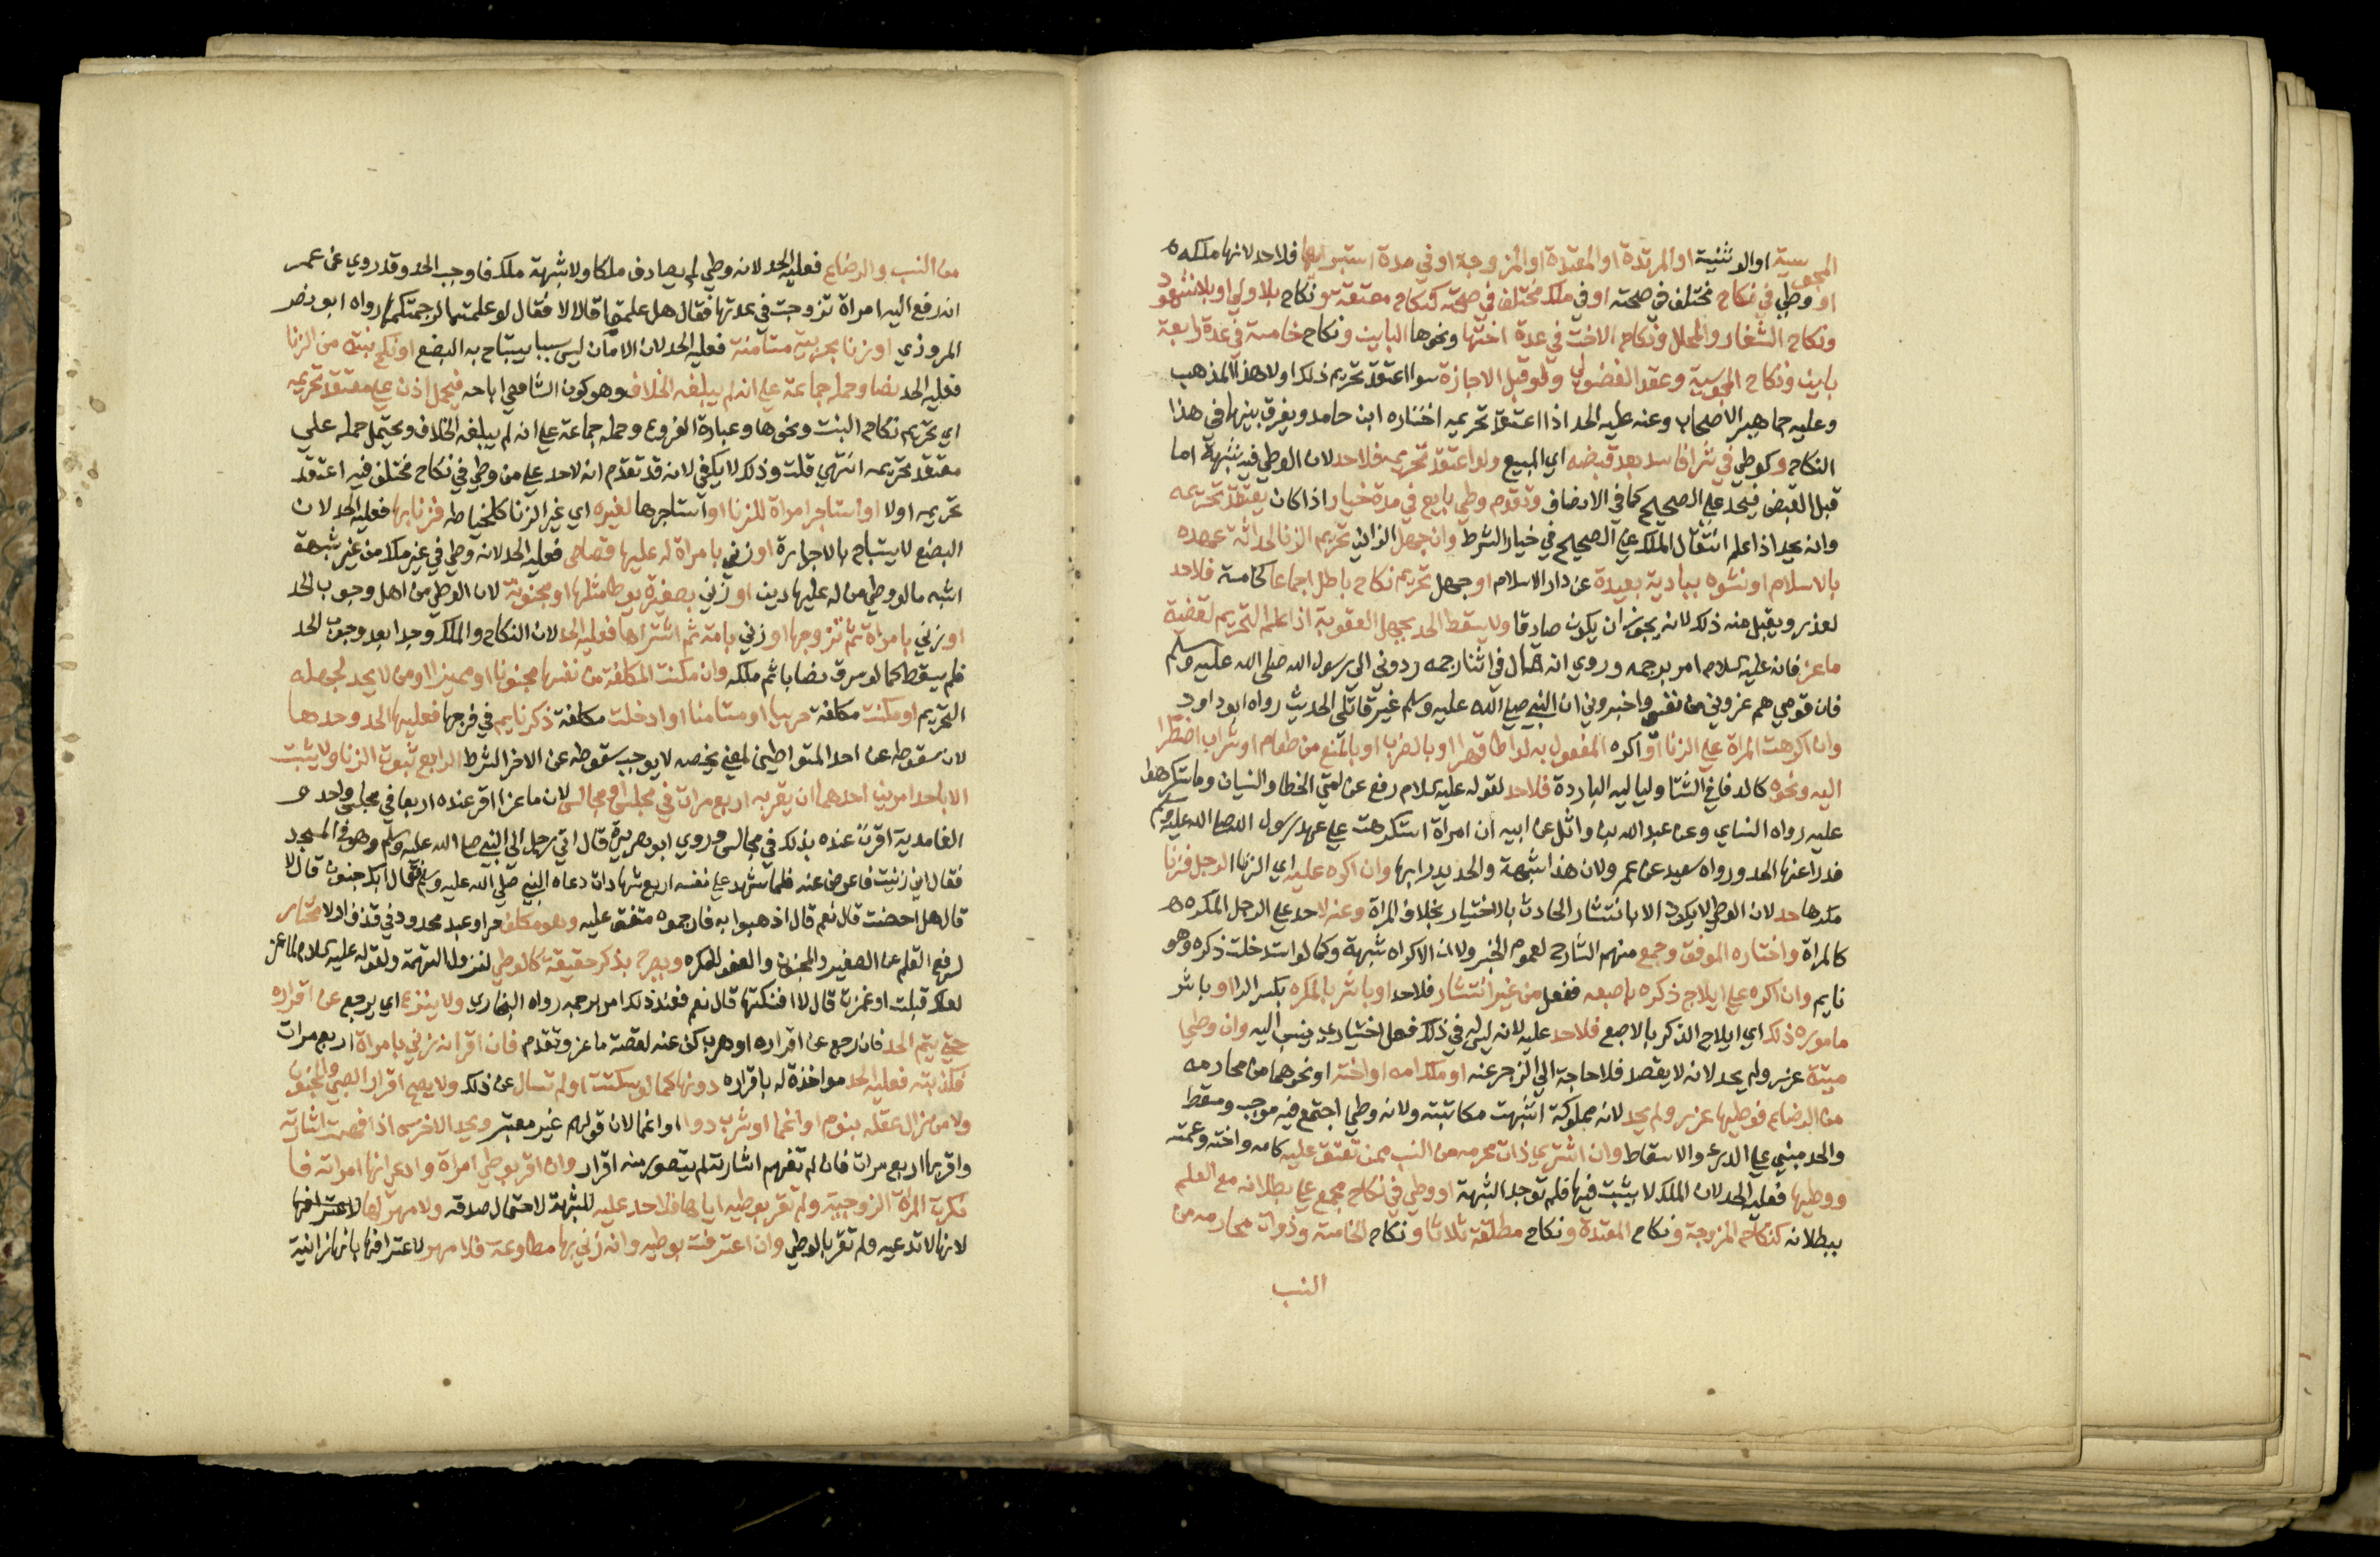 المجوسية او الوثنية او المرتدة او المعتدة او المزوجة او في مدة استبرايها فلا حد لانها ملكه
او وطي في نكاح مختلف في صحته او في ملك مختلف في صحته كنكاح متعة ونكاح بلا ولي او بلا شهود
ونكاح الشغار والمحلل ونكاح الاخت في عدة اختها ونحوها الباين ونكاح خامسة في عدة رابعة
باين ونكاح المجوسية وعقد الفضولي ولو قبل الاجازة سوا اعتقد تحريم ذلك او لا هذا المذهب
وعليه جماهير الاصحاب وعنه عليه الحد اذا اعتقد تحريمه اختاره ابن حامد ويفرق بينهما في هذا
النكاح وكوطي في شرا فاسد بعد قبضه اي المبيع ولو اعتقد تحريمه فلا حد لان الوطي فيه شبهة اما
قبل القبض فيحد على الصحيح كما في الانصاف وتقدم وطي بايع في مدة خيار اذا كان يعتقد تحريمه
وانه يحد اذا علم انتقال الملك على الصحيح في خيار الشرط وان جهل الزاني تحريم الزنا لحداثة عهده
بالاسلام او نشوه ببادية بعيدة عن دار الاسلام او جهل تحريم نكاح باطل اجماعا كخامسة فلا حد
لعذره ويقبل منه ذلك لانه يجوز ان يكون صادقا ولا يسقط الحد بجهل العقوبة اذا علم التحريم لقضية
ماعز فانه عليه السلام امر برجمه وروي انه قال في اثنا رجمه ردوني الى رسول الله صلى الله عليه وسلم
فان قومي هم غروني من نفسي واخبروني ان النبي صلى الله عليه وسلم غير قاتلي الحديث رواه ابو داود
وان اكرهت المراة على الزنا او اكره المفعول به لواطا قهرا او بالضرب او بالمنع من طعام او شراب اضطرا
اليه ونحوه كالدفا في الشتا ولياليه الباردة فلا حد لقوله عليه السلام رفع عن امتي الخطا والنسيان وما استكرهوا
عليه رواه النساي وعن عبد الله بن واثل عن ابيه ان امراة استكرهت على عهد رسول الله صلى الله عليه وسلم
فدرا عنها الحد ورواه سعيد عن عمر ولان هذا شبهة والحد يدرا بها وان اكره عليه اي الزنا الرجل فزنا
مكرها حد لان الوطي لا يكون الا بانتشار الحادث بالاختيار بخلاف المراة وعنه لا حد على الرجل المكره
كالمراة واختاره الموفق وجمع منهم الشارح لعموم الخبر ولان الاكراه شبهة وكما لو استدخلت ذكره وهو
نايم وان اكره على ايلاج ذكره باصبعه ففعل من غير انتشار فلا حد او باشر بالمكره بكسر الرا او باشر
ماموره ذلك اي ايلاج الذكر بالاصبع فلا حد عليه لانه ليس في ذلك فعل اختياري ينسب اليه وان وطي
ميتة عزر ولم يحد لانه لا يقصد فلا حاجة الى الزجر عنه او ملك امه او اخته او نحوهما من محارمه
من الرضاع فوطيها عزر ولم يحد لانه مملوكة اشبهت مكاتبته ولانه وطي اجتمع فيه موجب ومسقط
والحد مبني على الدرء والاسقاط وان اشتري ذات محرمه من النسب ممن تعتق عليه كامه واخته وعمته
ووطيها فعليه الحد لان الملك لا يثبت فيها فلم توجد الشبهة او وطي في نكاح مجمع على بطلانه مع العلم
ببطلانه كنكاح المزوجة ونكاح المعتدة ونكاح مطلقة ثلاثا ونكاح الخامسة وذوات محارمه من
النسب
من النسب والرضاع فعليه الحد لانه وطي لم يصادف ملكا ولا شبهة ملك فاوجب الحد وقد روي عن عمر
انه رفع اليه امراة تزوجت في عدتها فقال هل علمتما قالا لا فقال لو علمتما لرجمتكما رواه ابو نصر
المروذي او زنا بحربية مستامنة فعليه الحد لان الامان ليس سببا يستباح به البضع او نكح بنته من الزنا
فعليه الحد نصا وحمله جماعة على انه لم يبلغه الخلاف وهو كون الشافعي اباحه فيحمل اذن على معتقد تحريمه
اي تحريم نكاح البنت ونحوها وعبارة الفروع وحمله جماعة على انه لم يبلغه الخلاف ويحتمل حمله علي
معتقد تحريمه انتهى قلت وذلك لا يكفي لانه قد تقدم انه لا حد على من وطي في نكاح مختلف فيه اعتقد
تحريمه اولا او استاجر امراة للزنا او استاجرها لغيره اي غير الزنا كالخياطة فزنا بها فعليه الحد لان
البضع لا يستباح بالاجارة او زني بامراة له عليها قصاص فعليه الحد لانه وطي في غير ملك من غير شبهة
اشبه ما لو وطي من له عليها دين او زني بصغيرة يوطا مثلها او مجنونة لان الوطي من اهل وجوب الحد
او زني بامراة ثم تزوجها او زني بامة ثم اشتراها فعليه الحد لان النكاح والملك وجدا بعد وجوب الحد
فلم يسقط كما لو سرق نصابا ثم ملكه وان مكنت المكلفة من نفسها مجنونا او مميزا او من لا يحد لجهله
التحريم او مكنت مكلفة حربيا او مستامنا او ادخلت مكلفة ذكر نايم في فرجها فعليها الحد وحدها
لان سقوطه عن احد المتواطين لمعنى يخصه لا يوجب سقوطه عن الاخر الشرط الرابع ثبوت الزنا ولا يثبت
الا باحد امرين احدهما ان يقر به اربع مرات في مجلس او مجالس لان ماعزا اقر عنده اربعا في مجلس واحد و
الغامدية اقرت عنده بذلك في مجالس وروي ابو هريرة قال اتي رجل الى النبي صلى الله عليه وسلم وهو في المسجد
فقال اني زنيت فاعرض عنه فلما شهد على نفسه اربع شهادات دعاه النبي صلى الله عليه وسلم فقال ابك جنون قال لا
قال هل احصنت قال نعم قال اذهبوا به فارجموه متفق عليه وهو مكلف حر او عبد محدود في قذف او لا مختار
لرفع القلم عن الصغير والمجنون والعفو للمكره ويصرح بذكر حقيقة كالوطي لتزول التهمة ولقوله عليه السلام لماعز
لعلك قبلت او غمزت قال لا افنكتها قال نعم فعند ذلك امر برجمه رواه البخاري ولا ينزع اي يرجع عن اقراره
حتى يتم الحد فان رجع عن اقراره او هرب كف عنه لقصة ماعز وتقدم فان اقر انه زني بامراة اربع مرات
فكذبته فعليه الحد مواخذة له باقراره دونها كما لو سكتت او لم تسال عن ذلك ولا يصح اقرار الصبي والمجنون
ولا من زال عقله بنوم او اغما او شرب دوا او اغما لان قولهم غير معتبر ويحد الاخرس اذا فهمت اشارته
واقر بها اربع مرات فان لم تفهم اشارته لم يتصور منه اقرار وان اقر بوطي امراة وادعي انها امراته فا
نكرت المراة الزوجية ولم تقر بوطيه اياها فلا حد عليه للشبهة لاحتمال صدقه ولا مهر لها لاعترافها
لانها لا تدعيه ولم تقر بالوطي وان اعترفت بوطيه وانه زني بها مطاوعة فلا مهر لاعترافها بانها زانية